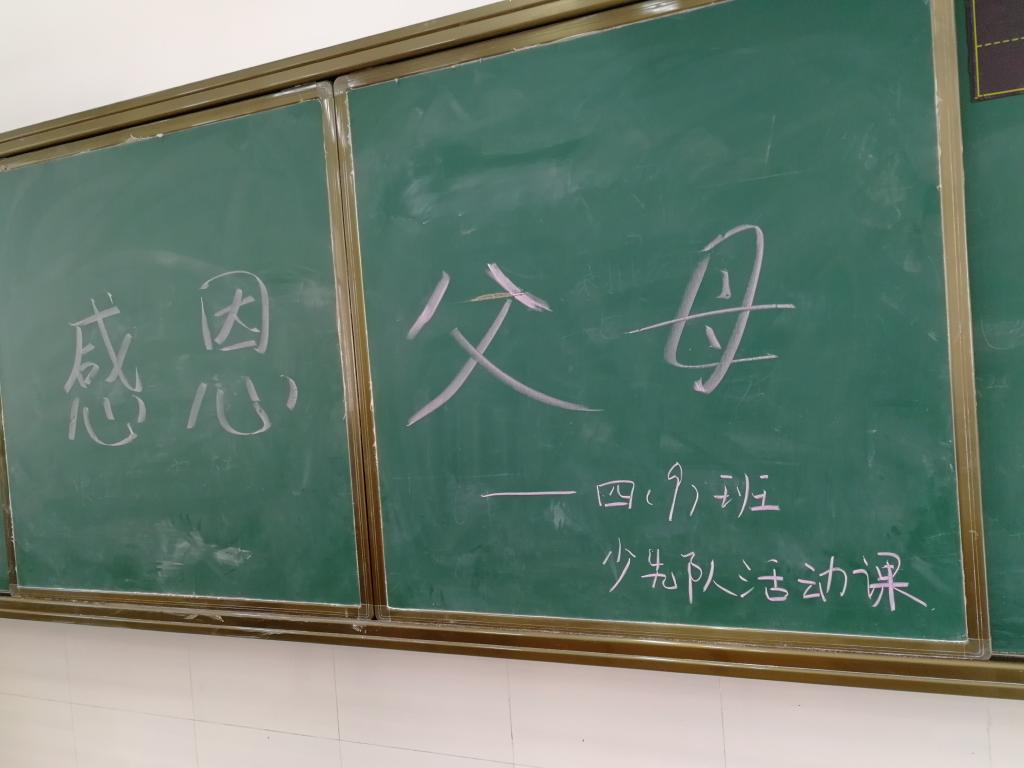 感恩父母
——四(9)班
少先队活动课